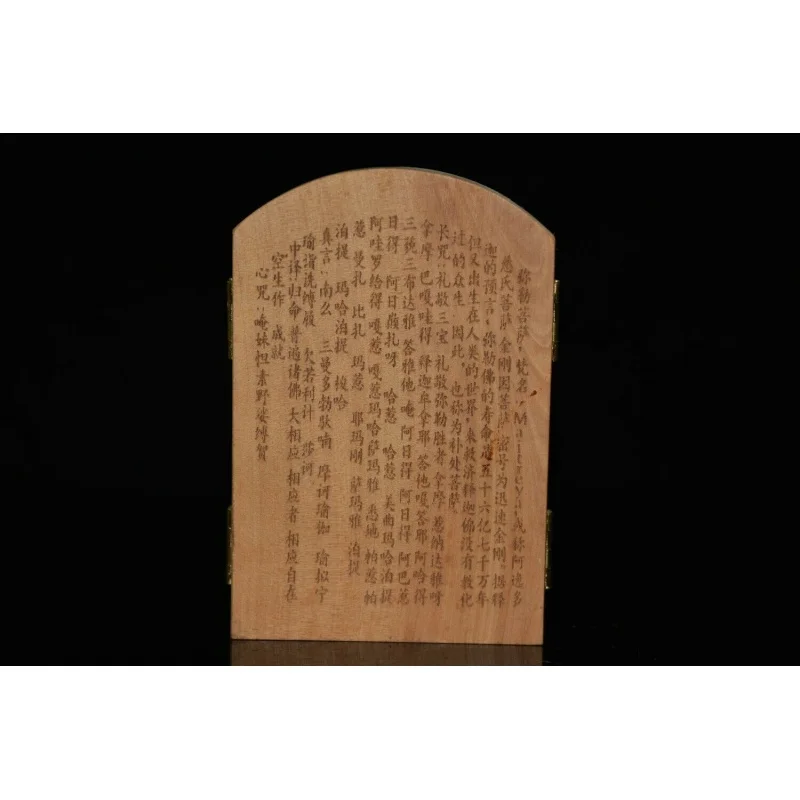 弥勒菩萨，梵名，Maitreya，或称阿逸多
慈氏菩萨，金刚因菩萨，密号为迅速金刚。据释
迦的预言，弥勒佛的寿命是五十六亿七千万年
但又出生在人类的世界，来救济释迦佛没有教化
过的众生，因此，也称为补处菩萨。
长咒：礼敬三宝 礼敬弥勒胜者 拿摩 惹纳达雅呀
拿摩 巴嘎哇得 释迦牟拿耶 答他嘎答耶 阿哈得
三藐三布达雅 答雅他 唵 阿日得 阿日得 阿巴惹
日得 阿日巅扎呀 哈惹 哈惹 美曲玛哈泊提
阿哇罗给得 嘎惹 嘎惹玛哈萨玛雅 悉地 帕惹帕
惹 曼扎 比扎 玛惹 耶玛刚 萨玛雅 泊提
泊提 玛哈泊提 梭哈
真言：南么 三曼多勃驮喃 摩诃瑜伽 瑜拟宁
瑜诣洗缚履 欠若利计 莎诃
中译：归命普遍诸佛 大相应 相应者 相应自在
空生作 成就
心咒：唵妹怛 素野娑缚贺